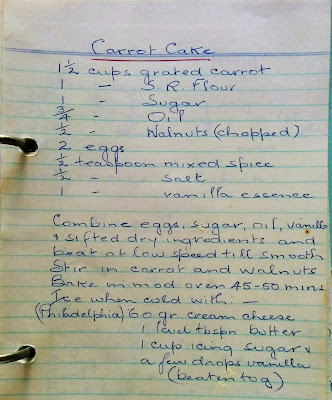 Carrot Cake
1½ cups grated carrot
1 - S.R. Flour
1 - Sugar
¾ - Oil
½ - Walnuts (chopped)
2 eggs
½ teaspoon mixed spice
½ - salt
1 - vanilla essence
Combine eggs, sugar, oil, vanilla
& sifted dry ingredients and
beat at low speed till smooth
Stir in carrot and walnuts
Bake in mod oven 45-50 mins
Ice when cold with: -
(Philadelphia) 60 gr cream cheese
1 level tbspn butter
1 cup icing sugar &
a few drops vanilla
(beaten tog)